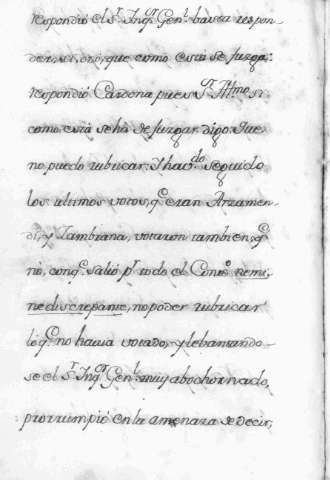 Respondió el S.r Inq.or Gen.l basta respon-
der si, o no, que como está se juzga:
respondió Cardona pues S.r Il.mo si
como está se ha de juzgar, digo que
no puedo rubricar. Y hav.do seguido
los ultimos votos, q.e eran Arzamen-
di, y Zambrana, votaron tambien, q.e
no, conq.e salió p.r todo el Cons.o nemi-
ne discrepante, no poder rubricar
lo q.e no havia votado, y lebantando-
se el S.r Inq.or Gen.l muy abochornado,
prorrumpió en la amenaza de decir,